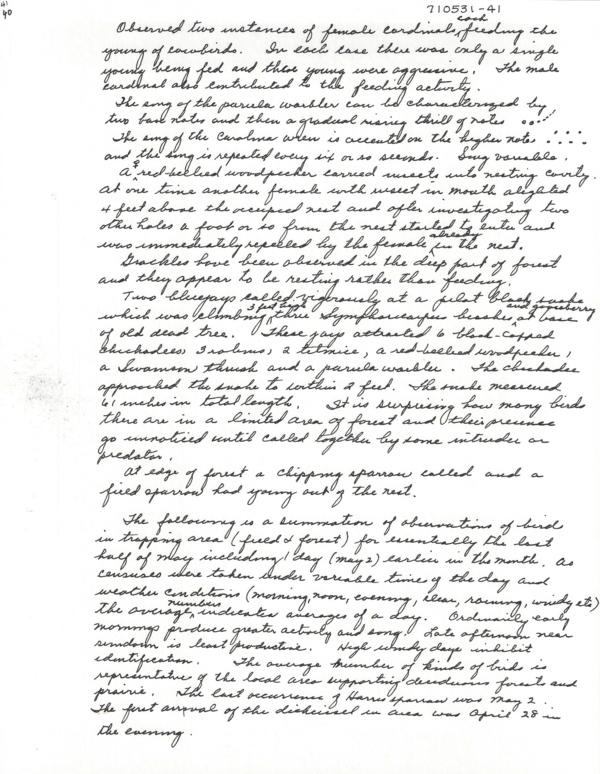 41
40
710531-41
Observed two instances of female cardinals each feeding the
young of cowbirds. In each case there was only a single
young being fed and these young were aggressive. The male
cardinal also contributed to the feeding activity.
The song of the parula warbler can be characterized by
two bass notes and then a gradual rising thrill of notes
The song of the Carolina wren is accented on the higher note
and the song is repeated every six or so seconds. Song variable.
A ♀ red-bellied woodpecker carried insects into nesting cavity.
At one time another female with insect in mouth alighted
4 feet above the occupied nest and after investigating two
other holes a foot or so from the nest started to enter and
was immediately repelled by the female already in the nest.
Grackles have been observed in the deep part of forest
and they appear to be resting rather than feeding.
Two bluejays called vigorously at a pilot black snake
which was climbing 3 feet high three Symphoricarpus bushes and gooseberry at base
of old dead tree. These jays attracted 6 black-capped
chickadees, 3 robins, 2 titmice, a red-bellied woodpecker,
a Swainson thrush and a parula warbler. The chickadee
approached the snake to within 2 feet. The snake measured
61 inches in total length. It is surprising how many birds
there are in a limited area of forest and their presence
go unnoticed until called together by some intruder or
predator.
At edge of forest a chipping sparrow called and a
field sparrow had young out of the nest.
The following is a summation of observations of bird
in trapping area (field & forest) for essentially the last
half of May including 1 day (May 2) earlier in the month. As
censuses were taken under variable time of the day and
weather conditions (morning, noon, evening, clear, raining, windy etc)
the average numbers indicates averages of a day. Ordinarily early
mornings produce greater activity and song. Late afternoon near
sundown is least productive. High windy days inhibit
identification. The average number of kinds of birds is
representative of the local area supporting deciduous forests and
prairie. The last occurrence of Harris sparrow was May 2.
The first arrival of the dickcissel in area was April 28 in
the evening.